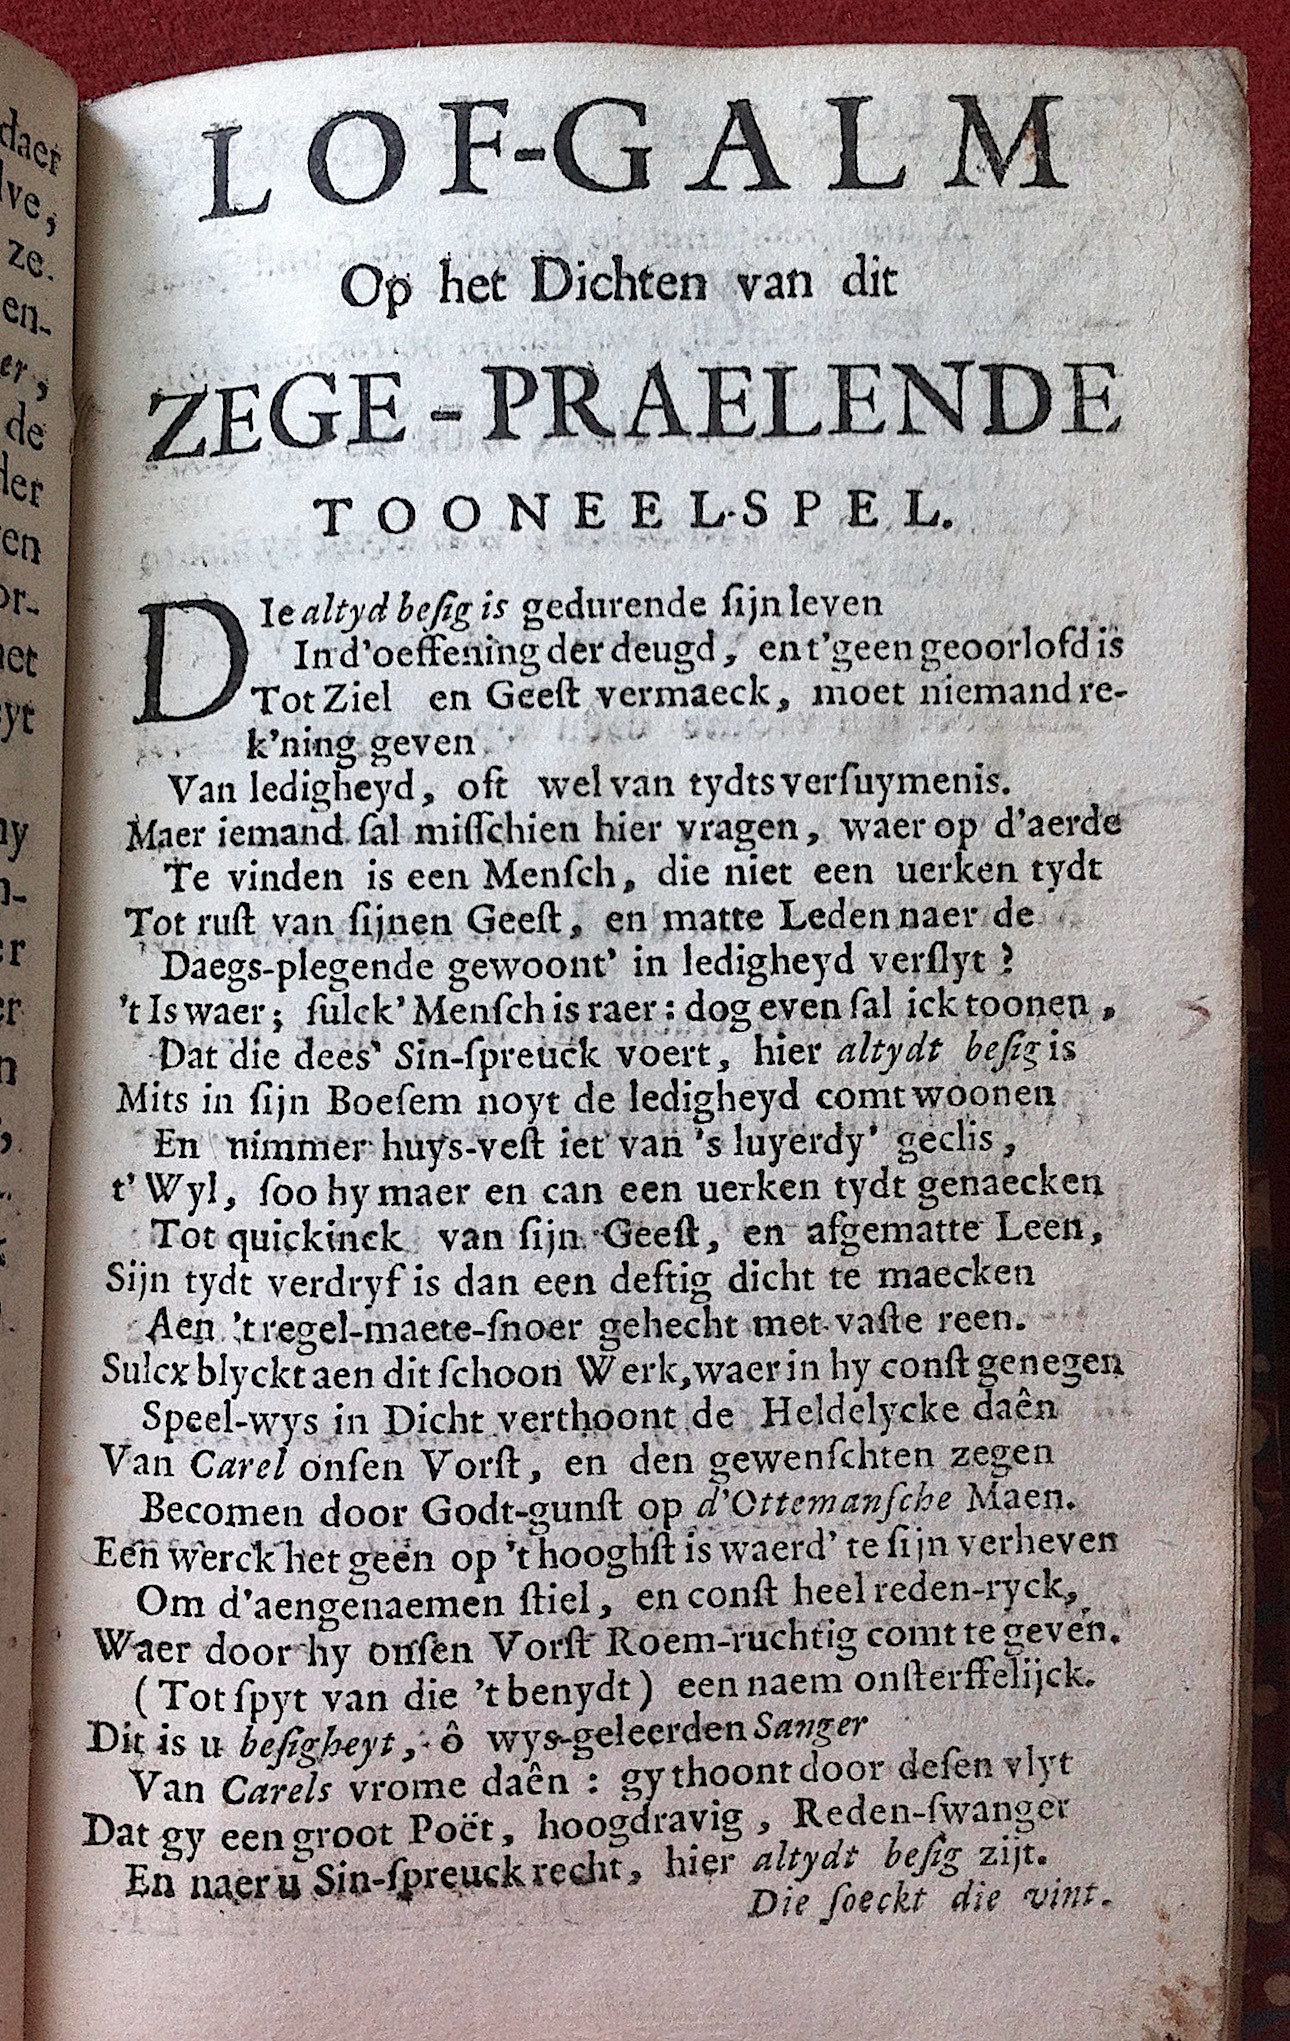 LOF-GALM
Op het Dichten van dit
ZEGE-PRAELENDE
TOONEEL-SPEL.
DIe altyd beſig is gedurende ſijn leven
In d'oeffening der deugd, en t'geen geoorlofd is
Tot Ziel en Geeſt vermaeck, moet niemand re-
k'ning geven
Van ledigheyd, oft wel van tydts verſuymenis.
Maer iemand ſal miſſchien hier vragen, waer op d'aerde
Te vinden is een Menſch, die niet een uerken tydt
Tot ruſt van ſijnen Geeſt, en matte Leden naer de
Daegs-plegende gewoont' in ledigheyd verſlyt?
't Is waer; ſulck' Menſch is raer: dog even ſal ick toonen,
Dat die dees' Sin-ſpreuck voert, hier altydt beſig is
Mits in ſijn Boeſem noyt de ledigheyd comt woonen
En nimmer huys-veſt iet van 's luyerdy' geclis,
t' Wyl, ſoo hy maer en can een uerken tydt genaecken
Tot quickinck van ſijn Geeſt, en afgematte Leen,
Sijn tydt verdryf is dan een deftig dicht te maecken
Aen 't regel-maete-ſnoer gehecht met vaſte reen.
Sulcx blyckt aen dit ſchoon Werk, waer in hy conſt genegen
Speel-wys in Dicht verthoont de Heldelycke daên
Van Carel onſen Vorſt, en den gewenſchten zegen
Becomen door Godt-gunſt op d'Ottemanſche Maen.
Een werck het geen op 't hooghſt is waerd' te ſijn verheven
Om d'aengenaemen ſtiel, en conſt heel reden-ryck,
Waer door hy onſen Vorſt Roem-ruchtig comt te geven.
(Tot ſpyt van die 't benydt) een naem onſterffelijck.
Dit is u beſigheyt, ô wys-geleerden Sanger
Van Carels vrome daên: gy thoont door deſen vlyt
Dat gy een groot Poët, hoogdravig, Reden-ſwanger
En naer u Sin-ſpreuck recht, hier altydt beſig zijt.
Die ſoeckt die vint.